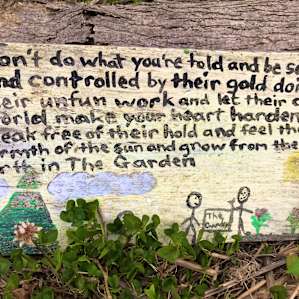 on't do what you're told and be so
nd controlled by their gold doi
eir unfun work and let their c
orld make your heart harden
eak free of their hold and feel the
rmth of the sun and grow from the
rth in The Garden
The
Garden